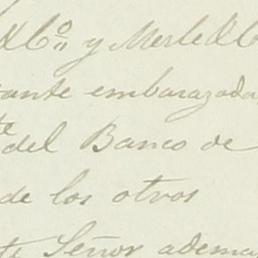 y Merle
ante embarazada
del Banco de
de los otros
te Señor adema